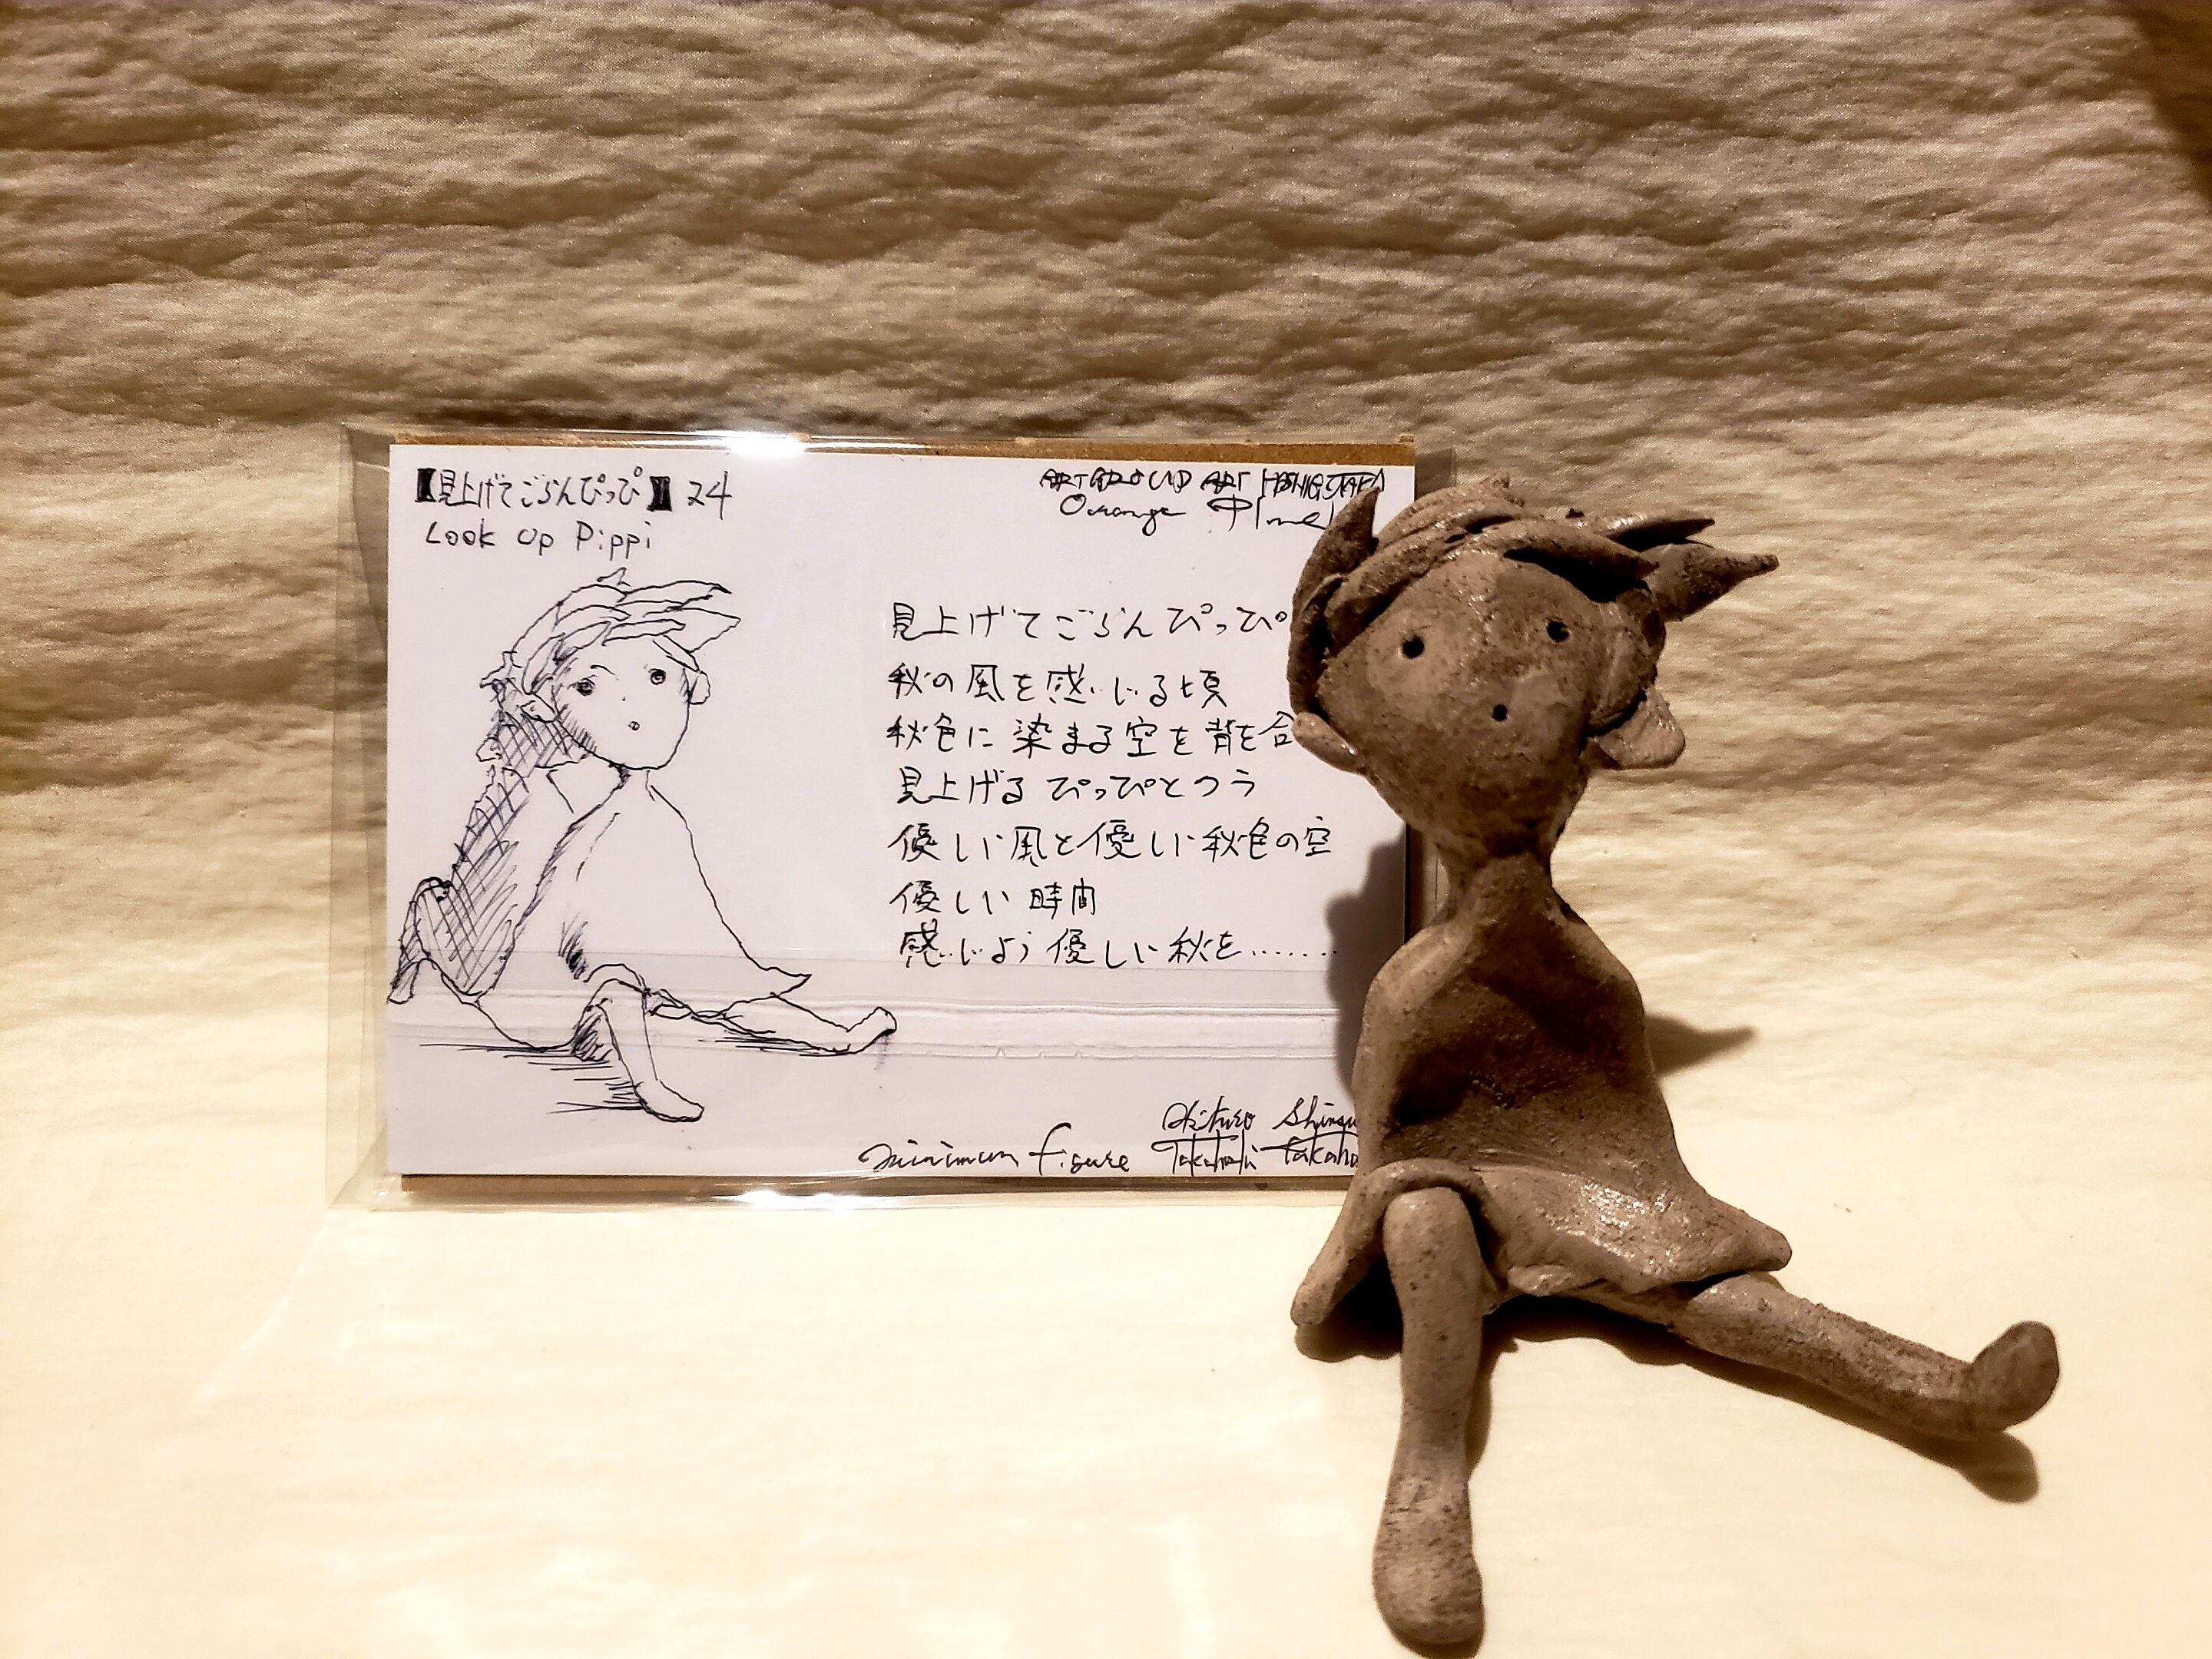 【見上げてごらんぴっぴ】24
Look Up Pippi
Orange
見上げてごらんぴっぴ
秋の風を感じる頃
秋色に染まる空を背を合
見上げる ぴっぴとつう
優しい風と優しい秋色の空
優しい時間
感じよう優しい秋を.......
minimum figure